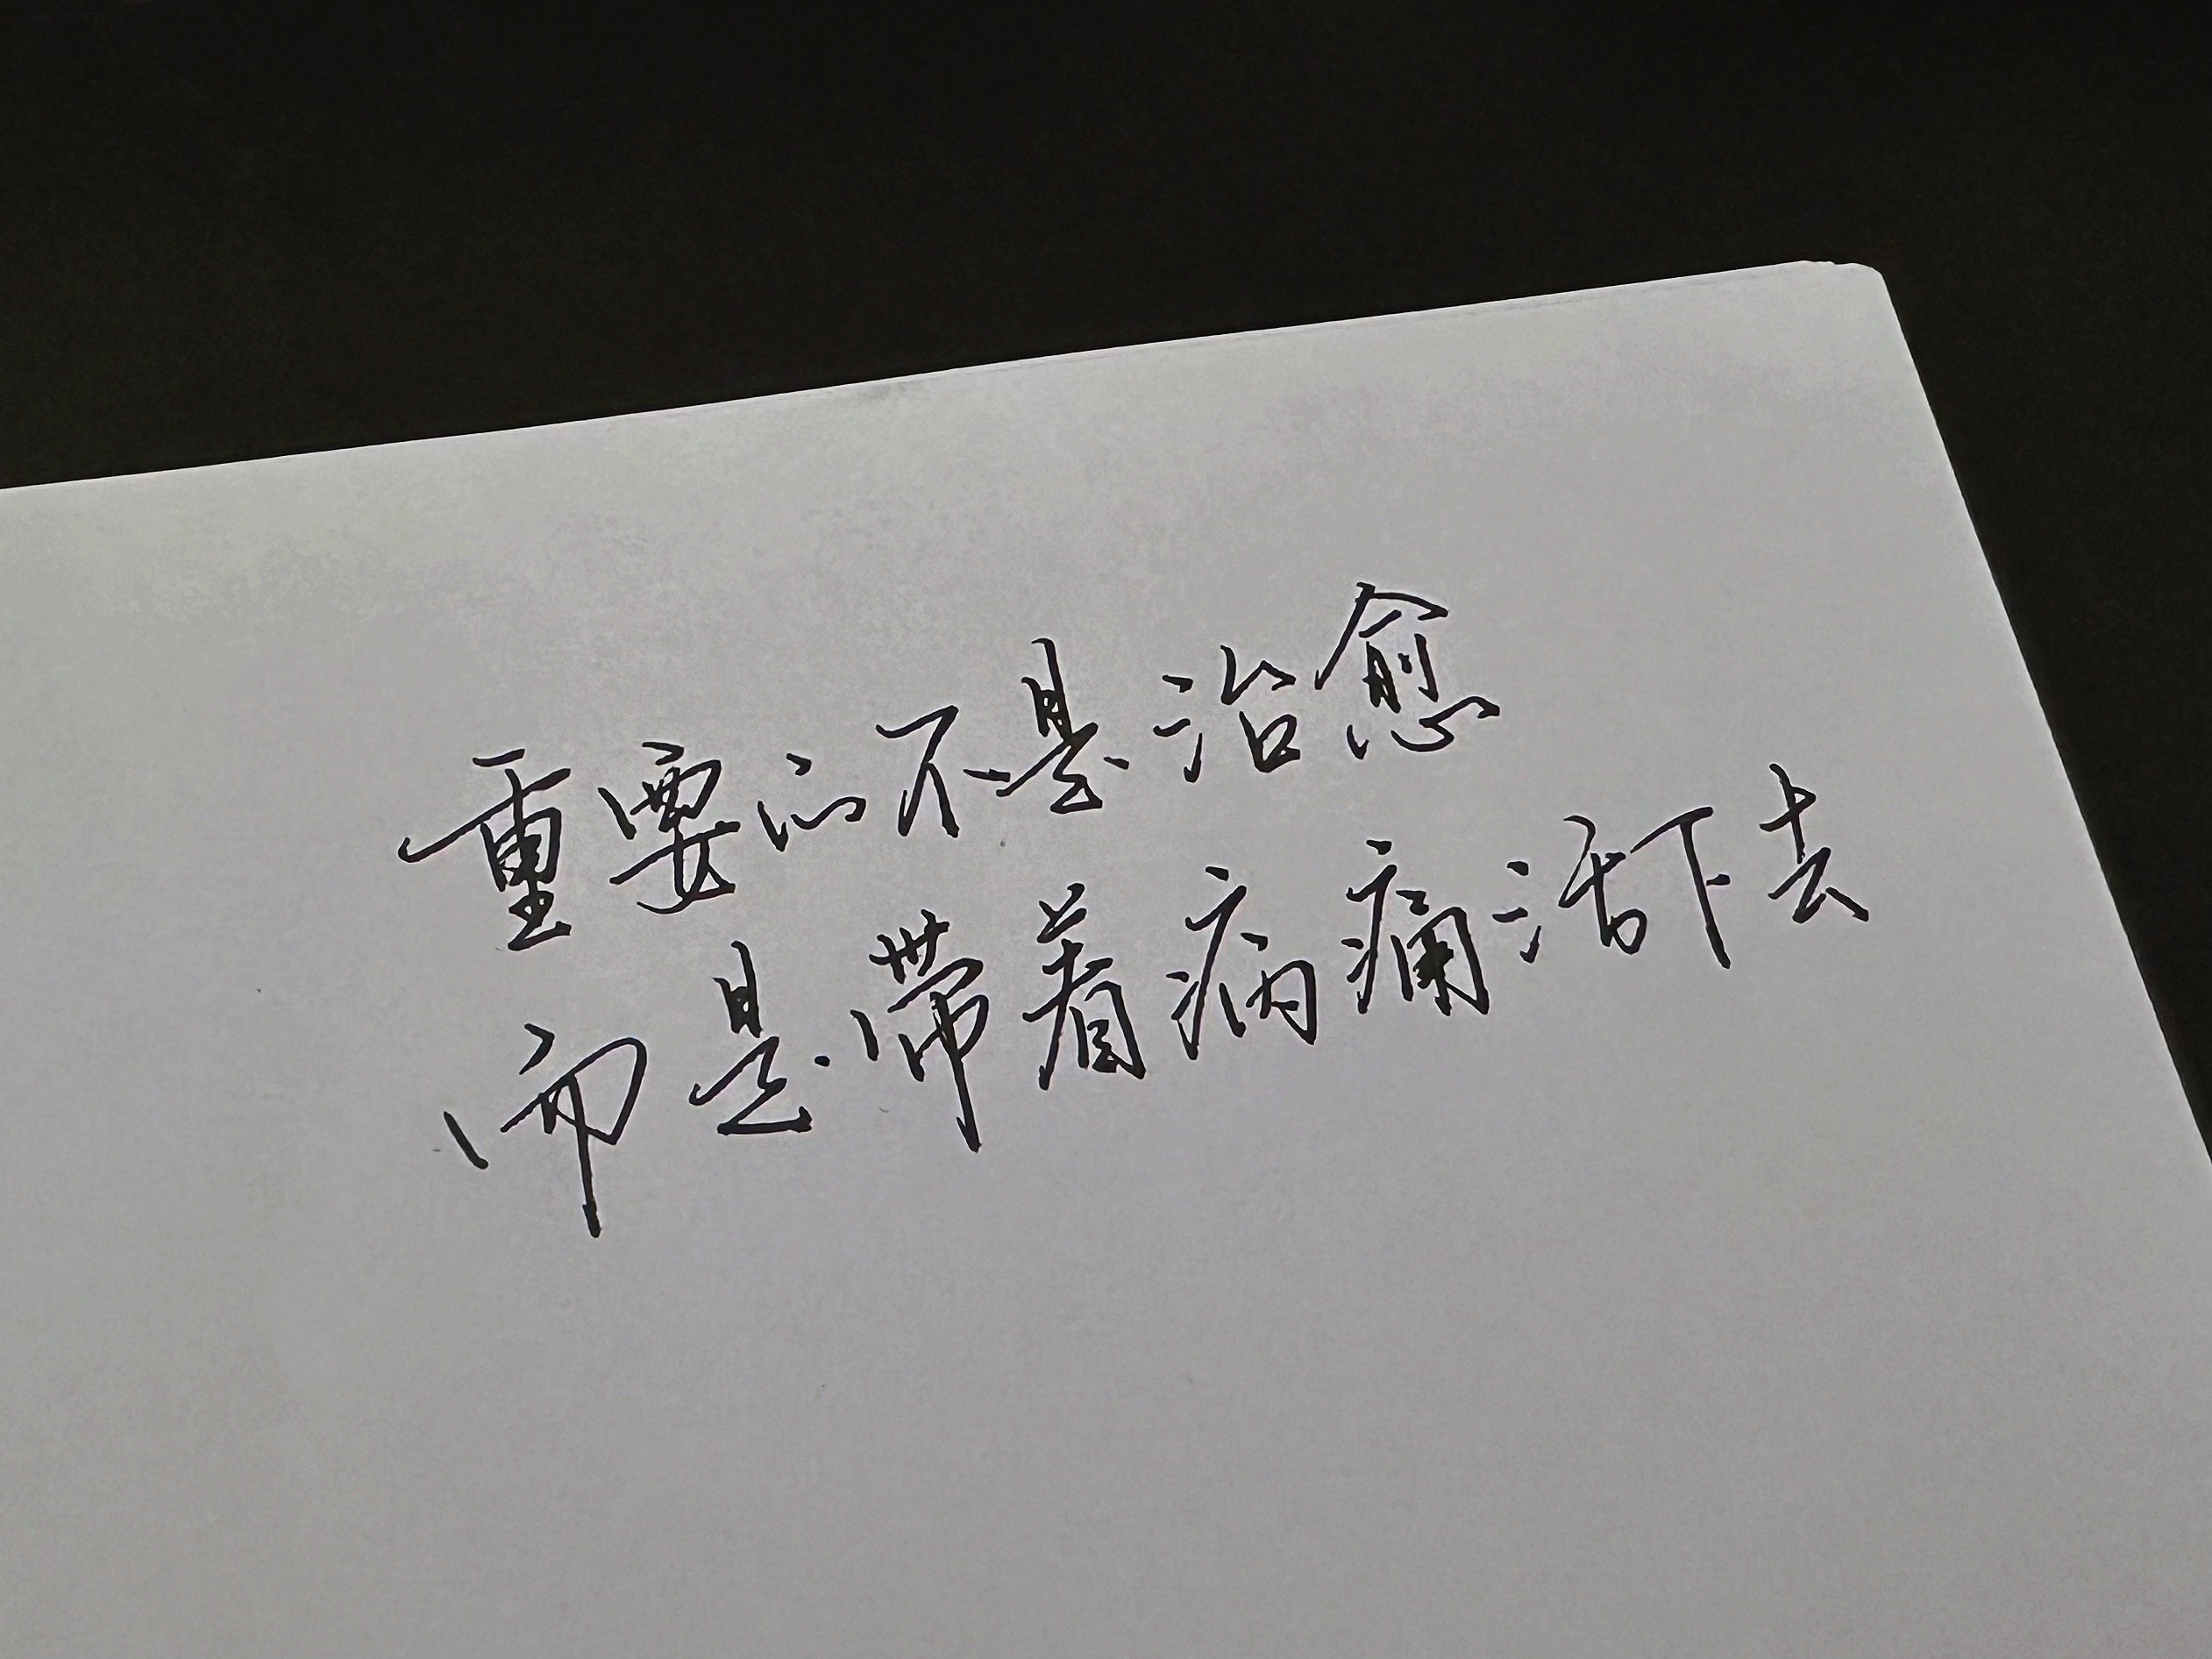 重要的不是治愈
而是带着病痛活下去